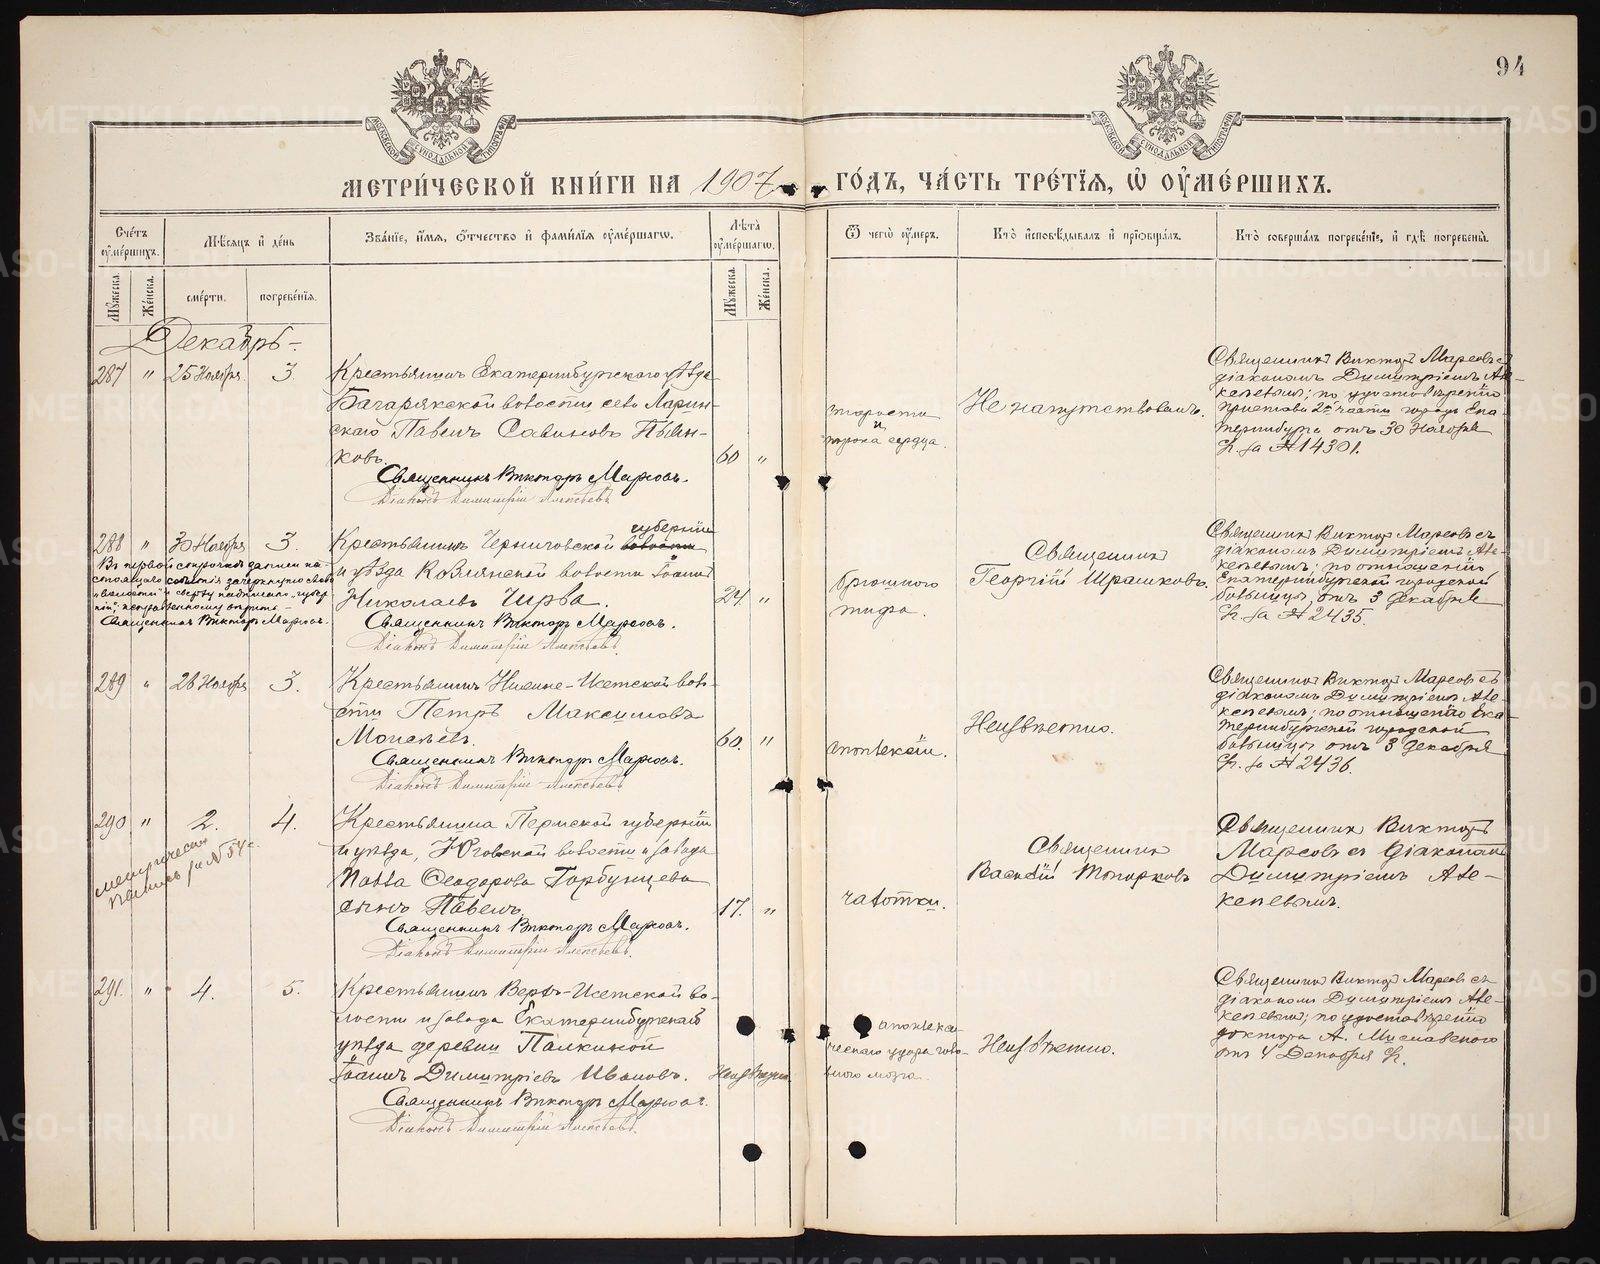 94
МЕТРИЧЕСКОЙ КНИГИ НА 1907
ГОДЪ, ЧАСТЬ ТРЕТІЯ, Ѡ ОУМЕРШИХЪ.
Счетъ оумершихъ.
Мѣсяцъ и день
Званіе, имя, отчество и фамилія оумершагѡ.
Лѣта оумершагѡ.
Ѿ чегѡ оумеръ.
Кто исповѣдывалъ и пріобщалъ.
Кто совершалъ погребеніе, и гдѣ погребены.
Мужеска.
Женска.
смерти.
погребенія.
Мужеска.
Женска.
Декабрь.
287 " 25 Ноября 3.
Крестьянинъ Екатеринбургскаго уѣзда
Багарякской волости села Ларин-
скаго Павелъ Савиновъ Пьян-
ковъ.
60 "
Священникъ Викторъ Марковъ.
Діаконъ Димитрій Алексѣевъ
старости
и
порока сердца.
Не напутствованъ.
Священникъ Викторъ Марковъ съ
діакономъ Димитріемъ Але-
ксѣевымъ; по удостовѣренію
пристава 2й части города Ека-
теринбурга отъ 30 Ноября
с.г. за № 14301.
288 " 30 Ноября 3.
Въ первой строчкѣ записи на-
стоящаго событія зачеркнуто слово
"волости" и сверху надписано "губер-
ніи", исправленному вѣрить.
Священникъ Викторъ Марковъ.
губерніи
Крестьянинъ Черниговской волости
и уѣзда Козлянской волости Іоаннъ
Николаевъ Чирва.
24 "
Священникъ Викторъ Марковъ.
Діаконъ Димитрій Алексѣевъ.
брюшного
тифа.
Священникъ
Георгій Шрашковъ.
Священникъ Викторъ Марковъ съ
діакономъ Димитріемъ Але-
ксѣевымъ; по отношенію
Екатеринбургской городской
больницы отъ 3 декабря
с.г. за № 2435.
289 " 26 Ноября 3.
Крестьянинъ Нижне-Исетской воло-
сти Петръ Максимовъ
60. "
Священникъ Викторъ Марковъ.
Діаконъ Димитрій Алексѣевъ
апоплексіи.
Неизвѣстно.
Священникъ Викторъ Марковъ съ
діакономъ Димитріемъ Але-
ксѣевымъ; по отношенію Ека-
теринбургской городской
больницы отъ 3 декабря
с.г. за № 2436.
290 " 2. 4.
Крестьянина Пермской губерніи
и уѣзда, Юговской волости и завода
Павла Ѳеодорова Горбунцева
сынъ Павелъ
17. "
Священникъ Викторъ Марковъ.
Діаконъ Димитрій Алексѣевъ.
чахотки.
Священникъ
Василій Топорковъ
Священникъ Викторъ
Марковъ съ діакономъ
Димитріемъ Але-
ксѣевымъ.
291. " 4. 5.
Крестьянинъ Верхъ-Исетской во-
лости и завода Екатеринбургскаго
уѣзда деревни Палкиной
Іоаннъ Димитріевъ Ивановъ.
Неизвѣстно.
Священникъ Викторъ Марковъ.
Діаконъ Димитрій Алексѣевъ.
апоплекси-
ческаго удара голо-
вного мозга.
Неизвѣстно.
Священникъ Викторъ Марковъ съ
діакономъ Димитріемъ Але-
ксѣевымъ; по удостовѣренію
доктора А. Миславскаго
отъ 4 Декабря с.г.
METRIKI.GASO-URAL.RU